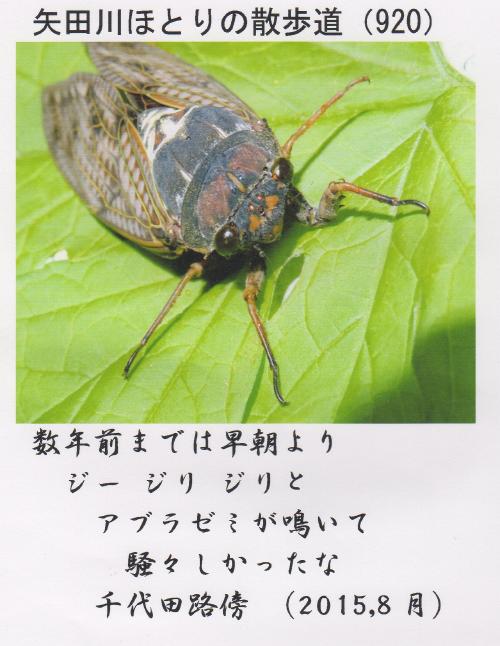 矢田川ほとりの散歩道（920）
数年前までは早朝より
ジー ジリ ジリと
アブラゼミが鳴いて
騒々しかったな
千代田路傍 （2015,8 月）